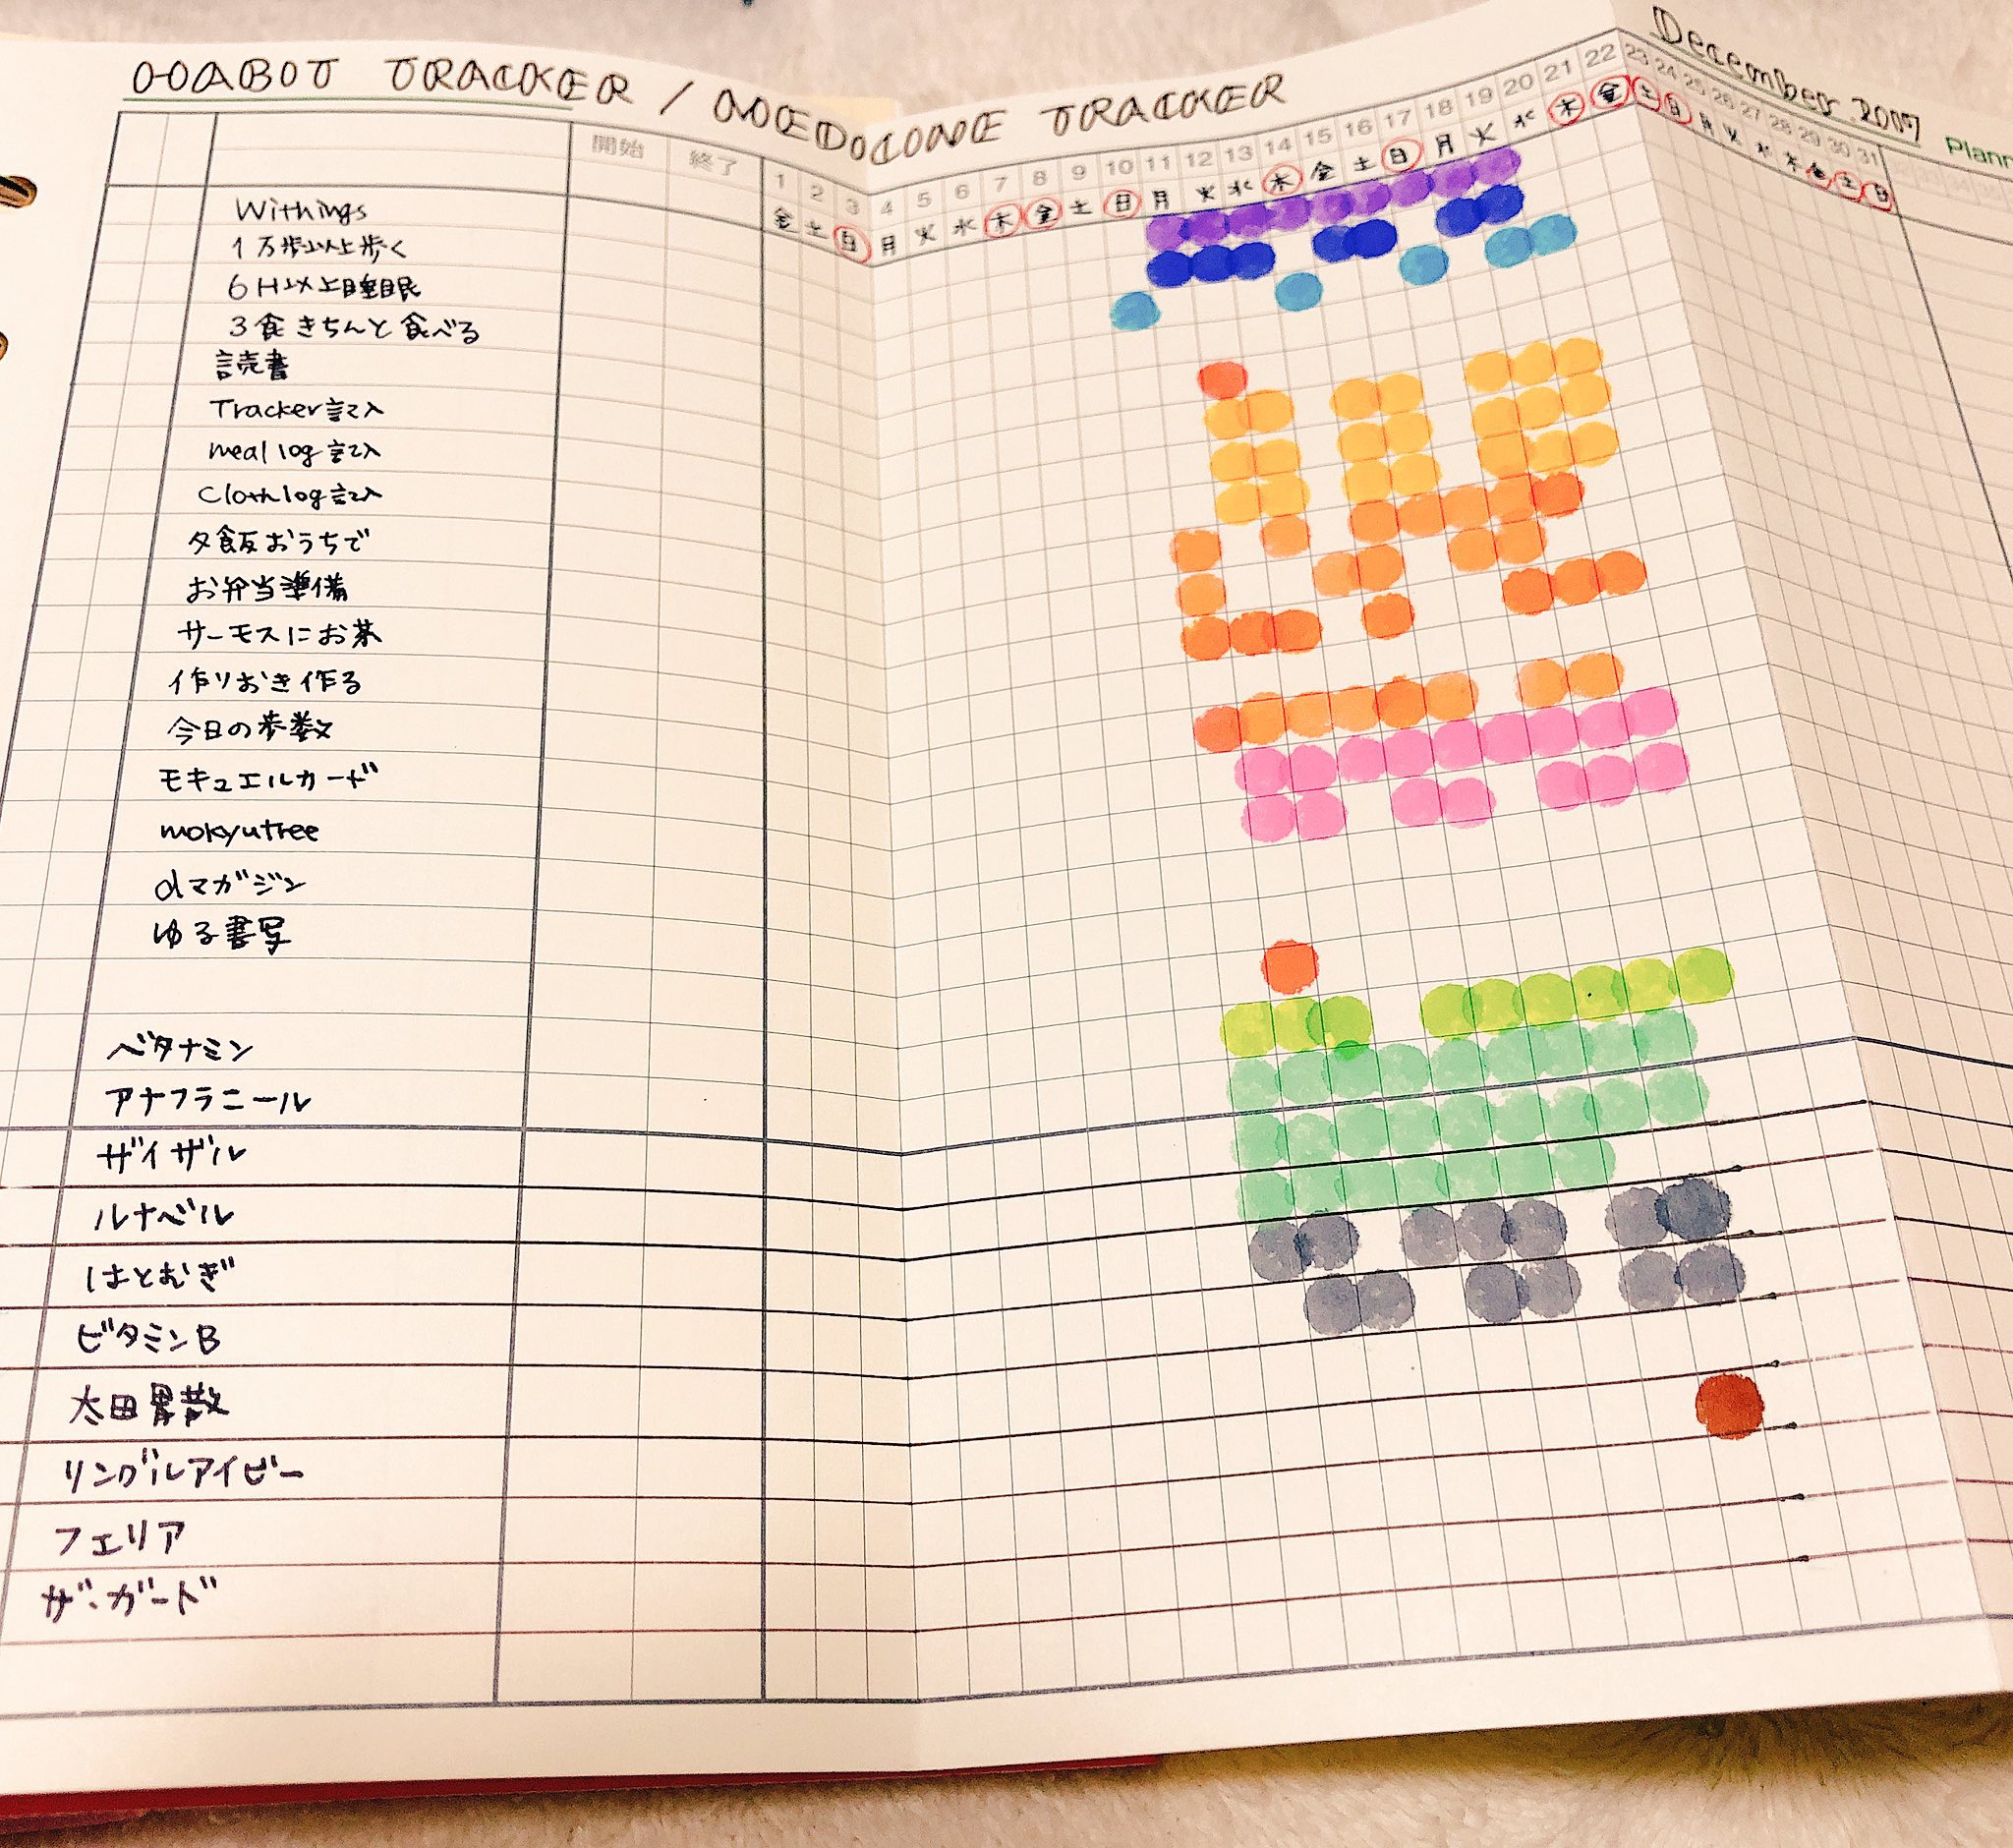 HABIT TRACKER / MEDICINE TRACKER
December 2017
Plann
開始 終了 1 2 3 4 5 6 7 8 9 10 11 12 13 14 15 16 17 18 19 20 21 22 23 24 25 26 27 28 29 30 31
金 土 日 月 火 水 木 金 土 日 月 火 水 木 金 土 日 月 火 水 木 金 土 日 月 火 水 木 金 土 日
Withings
1万歩以上歩く
6H以上睡眠
3食きちんと食べる
読書
Tracker記入
meal log記入
Cloth log記入
夕飯おうちで
お弁当準備
サーモスにお茶
作りおき作る
今日の歩数
モキュエルカード
mokyutree
dマガジン
ゆる書写
ベタナミン
アナフラニール
ザイザル
ルナベル
はとむぎ
ビタミンB
太田胃散
リングルアイビー
フェリア
ザ・ガード